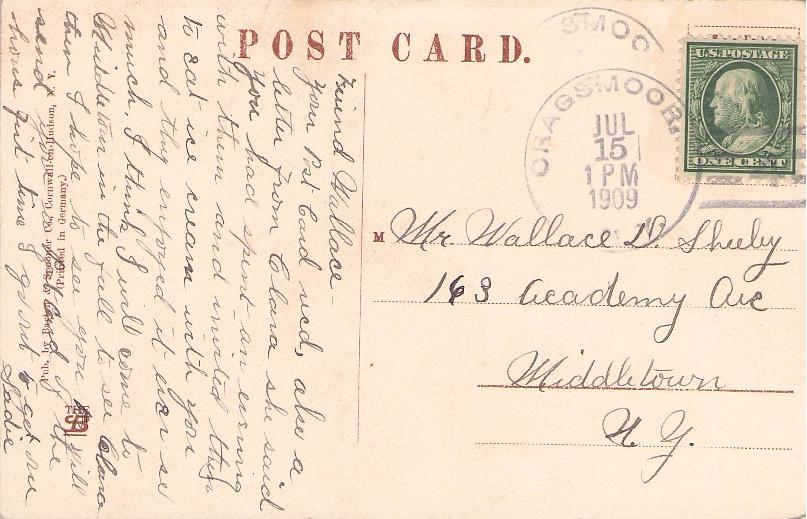 POST CARD.
CRAGSMOOR
JUL
15
1 PM
1909
U.S. POSTAGE
ONE CENT
M
Mr Wallace D. Sheeley
163 Academy Ave
Middletown
N. Y.
Friend Wallace-
Your Post Card recd, also a
letter from Clara she said
you had spent an evening
with them and invited them
to eat ice cream with you
and they enjoyed it ever so
much. I think I will come to
Middletown in the fall to see Clara
then I hope to see you. Will
send you a card of the
house first time I go out to get one
Sadie
Cornwall-on-Hudson,
(Printed in Germany.)